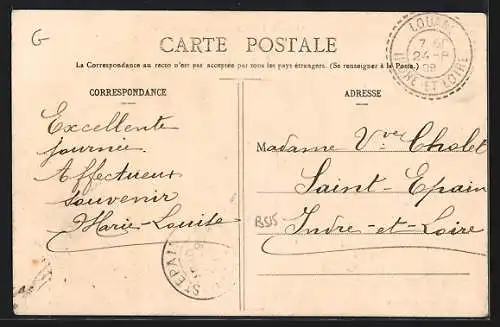 G
CARTE POSTALE
La Correspondance au recto n'est pas acceptée par tous les pays étrangers. (Se renseigner à la Poste.)
LOUANS
24 - 8
08
INDRE-ET-LOIRE
CORRESPONDANCE
ADRESSE
Excellente
journée.
Affectueux
souvenir
Marie-Louise
Madame Vve Cholet
Saint-Epain
Indre-et-Loire
B515
ST EPAIN